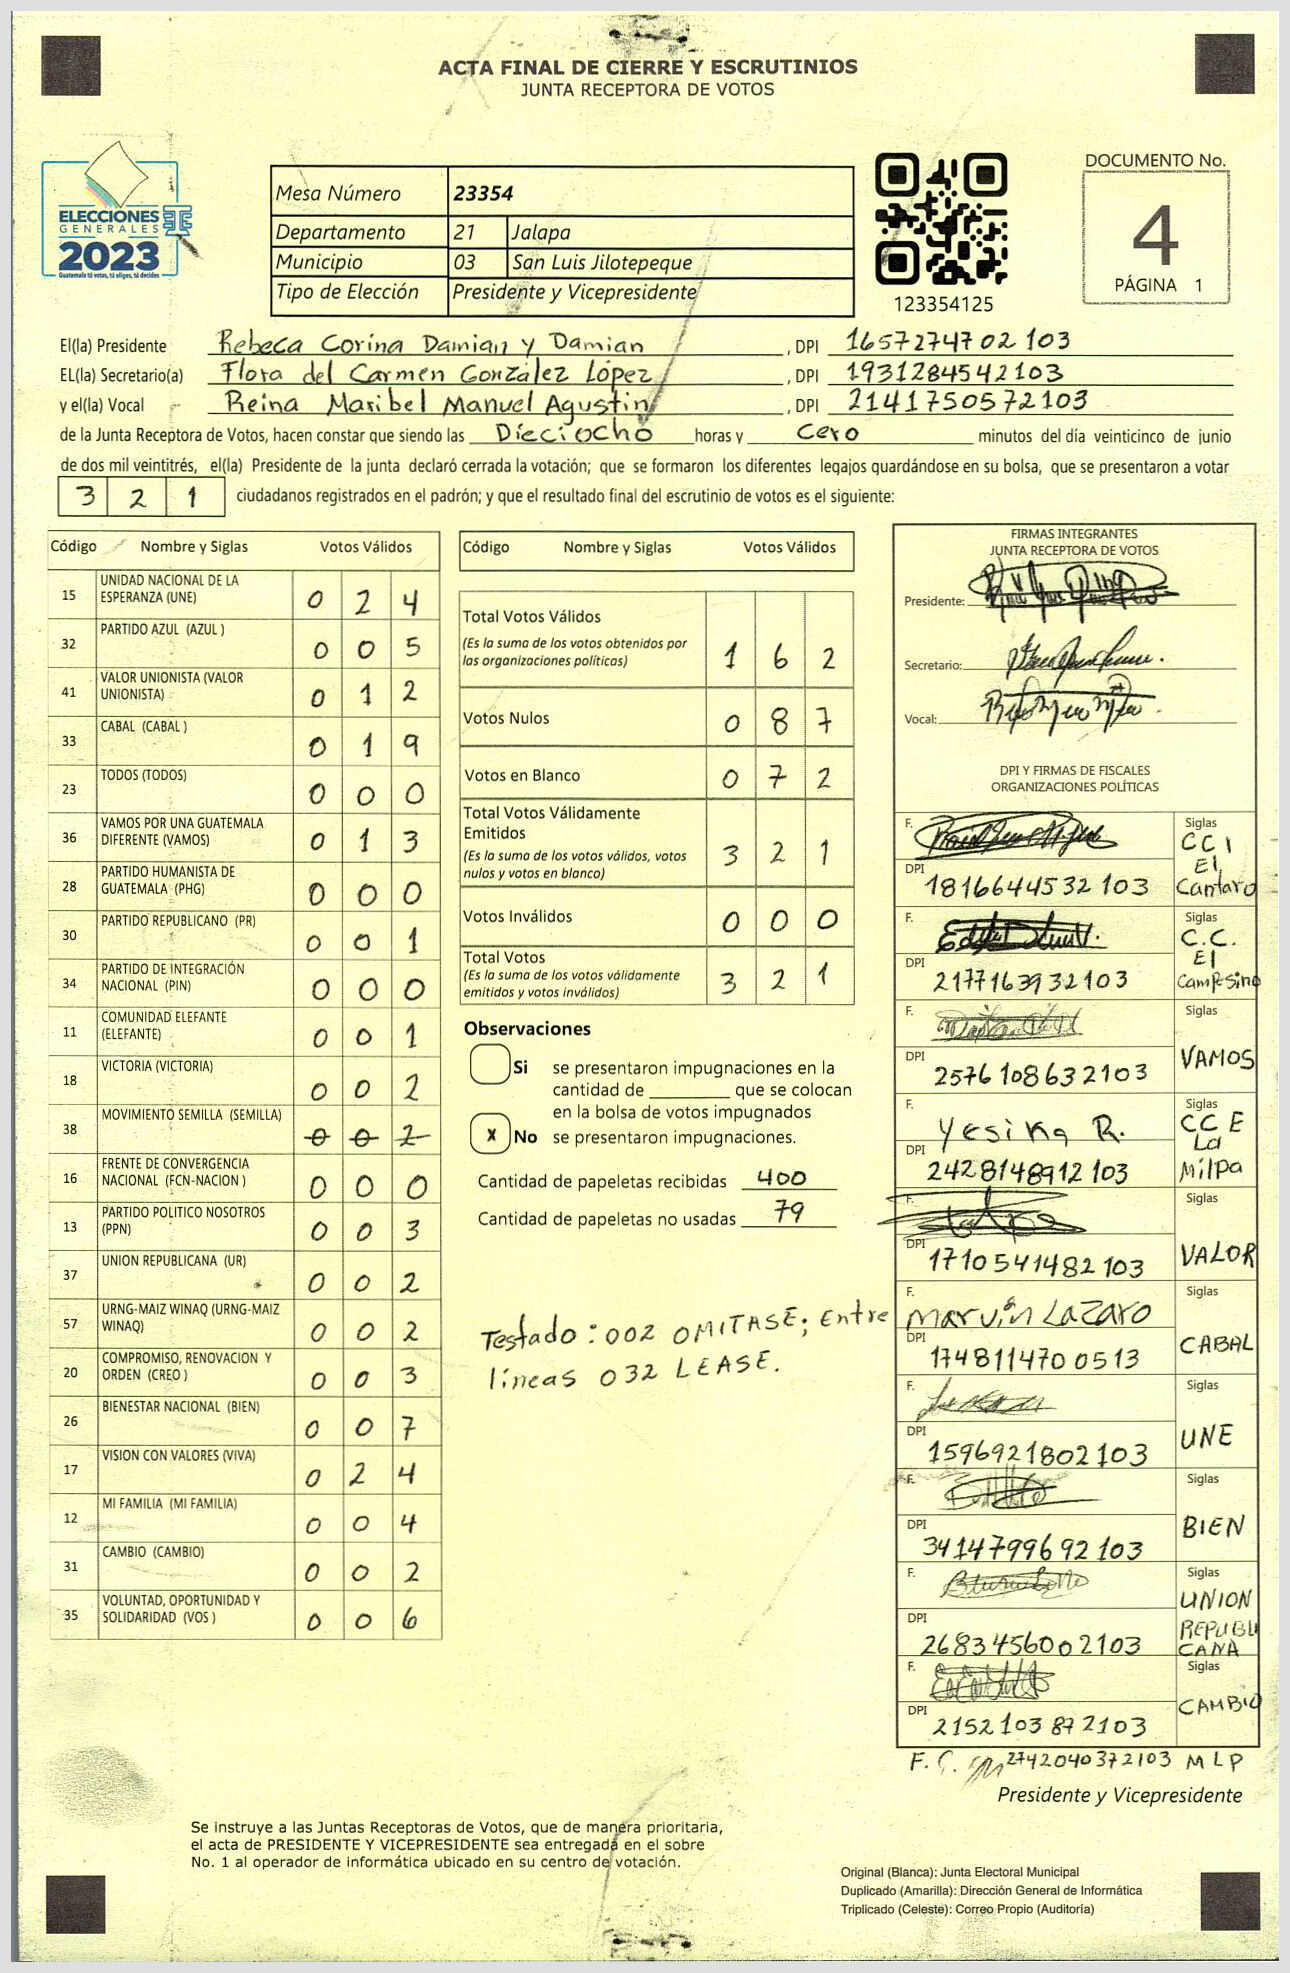 ACTA FINAL DE CIERRE Y ESCRUTINIOS
JUNTA RECEPTORA DE VOTOS
ELECCIONES
GENERALES
2023
Guatemala tú votas, tú eliges, tú decides
Mesa Número 23354
Departamento 21 Jalapa
Municipio 03 San Luis Jilotepeque
Tipo de Elección Presidente y Vicepresidente
123354125
DOCUMENTO No.
4
PÁGINA 1
El(la) Presidente Rebeca Corina Damian y Damian , DPI 1657274702103
EL(la) Secretario(a) Flora del Carmen González López , DPI 1931284542103
y el(la) Vocal Reina Maribel Manuel Agustin , DPI 2141750572103
de la Junta Receptora de Votos, hacen constar que siendo las Dieciocho horas y cero minutos del día veinticinco de junio
de dos mil veintitrés, el(la) Presidente de la junta declaró cerrada la votación; que se formaron los diferentes legajos guardándose en su bolsa, que se presentaron a votar
3 2 1 ciudadanos registrados en el padrón; y que el resultado final del escrutinio de votos es el siguiente:
Código Nombre y Siglas Votos Válidos
15 UNIDAD NACIONAL DE LA ESPERANZA (UNE) 0 2 4
32 PARTIDO AZUL (AZUL ) 0 0 5
41 VALOR UNIONISTA (VALOR UNIONISTA) 0 1 2
33 CABAL (CABAL ) 0 1 9
23 TODOS (TODOS) 0 0 0
36 VAMOS POR UNA GUATEMALA DIFERENTE (VAMOS) 0 1 3
28 PARTIDO HUMANISTA DE GUATEMALA (PHG) 0 0 0
30 PARTIDO REPUBLICANO (PR) 0 0 1
34 PARTIDO DE INTEGRACIÓN NACIONAL (PIN) 0 0 0
11 COMUNIDAD ELEFANTE (ELEFANTE) 0 0 1
18 VICTORIA (VICTORIA) 0 0 2
38 MOVIMIENTO SEMILLA (SEMILLA) 0 0 2
16 FRENTE DE CONVERGENCIA NACIONAL (FCN-NACION ) 0 0 0
13 PARTIDO POLITICO NOSOTROS (PPN) 0 0 3
37 UNION REPUBLICANA (UR) 0 0 2
57 URNG-MAIZ WINAQ (URNG-MAIZ WINAQ) 0 0 2
20 COMPROMISO, RENOVACION Y ORDEN (CREO ) 0 0 3
26 BIENESTAR NACIONAL (BIEN) 0 0 7
17 VISION CON VALORES (VIVA) 0 2 4
12 MI FAMILIA (MI FAMILIA) 0 0 4
31 CAMBIO (CAMBIO) 0 0 2
35 VOLUNTAD, OPORTUNIDAD Y SOLIDARIDAD (VOS ) 0 0 6
Código Nombre y Siglas Votos Válidos
Total Votos Válidos
(Es la suma de los votos obtenidos por
las organizaciones políticas) 1 6 2
Votos Nulos 0 8 7
Votos en Blanco 0 7 2
Total Votos Válidamente
Emitidos
(Es la suma de los votos válidos, votos
nulos y votos en blanco) 3 2 1
Votos Inválidos 0 0 0
Total Votos
(Es la suma de los votos válidamente
emitidos y votos inválidos) 3 2 1
Observaciones
Si se presentaron impugnaciones en la
cantidad de ________ que se colocan
en la bolsa de votos impugnados
X No se presentaron impugnaciones.
Cantidad de papeletas recibidas 400
Cantidad de papeletas no usadas 79
Testado: 002 OMITASE; Entre
líneas 032 LEASE.
FIRMAS INTEGRANTES
JUNTA RECEPTORA DE VOTOS
Presidente:
Secretario:
Vocal:
DPI Y FIRMAS DE FISCALES
ORGANIZACIONES POLÍTICAS
F. Siglas
CCI
El
Cantaro
DPI 1816644532103
F. Siglas
C.C.
El
Campesino
DPI 2177163932103
F. Siglas
VAMOS
DPI 2576108632103
F. Yesika R. Siglas
CCE
La
Milpa
DPI 2428148912103
F. Siglas
VALOR
DPI 1710541482103
F. Marvin Lazaro Siglas
CABAL
DPI 1748114700513
F. Siglas
UNE
DPI 1596921802103
F. Siglas
BIEN
DPI 3414799692103
F. Siglas
UNION
REPUBLI
CANA
DPI 2683456002103
F. Siglas
CAMBIO
DPI 2152103872103
F. 2742040372103 MLP
Presidente y Vicepresidente
Se instruye a las Juntas Receptoras de Votos, que de manera prioritaria,
el acta de PRESIDENTE Y VICEPRESIDENTE sea entregada en el sobre
No. 1 al operador de informática ubicado en su centro de votación.
Original (Blanca): Junta Electoral Municipal
Duplicado (Amarilla): Dirección General de Informática
Triplicado (Celeste): Correo Propio (Auditoría)